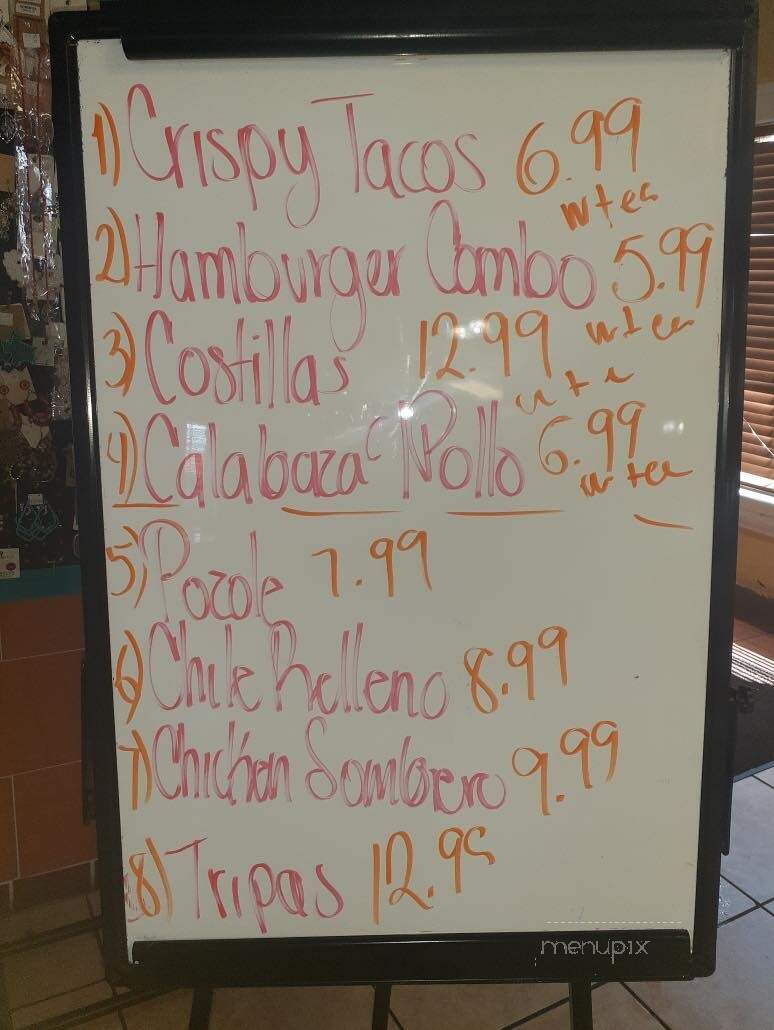 1) Crispy Tacos 6.99
w tea
2) Hamburger Combo 5.99
w tea
3) Costillas 12.99
w te
4) Calabaza c/Pollo 6.99
w tea
5) Pozole 7.99
6) Chile Relleno 8.99
7) Chicken Sombrero 9.99
8) Tripas 12.99
menupix